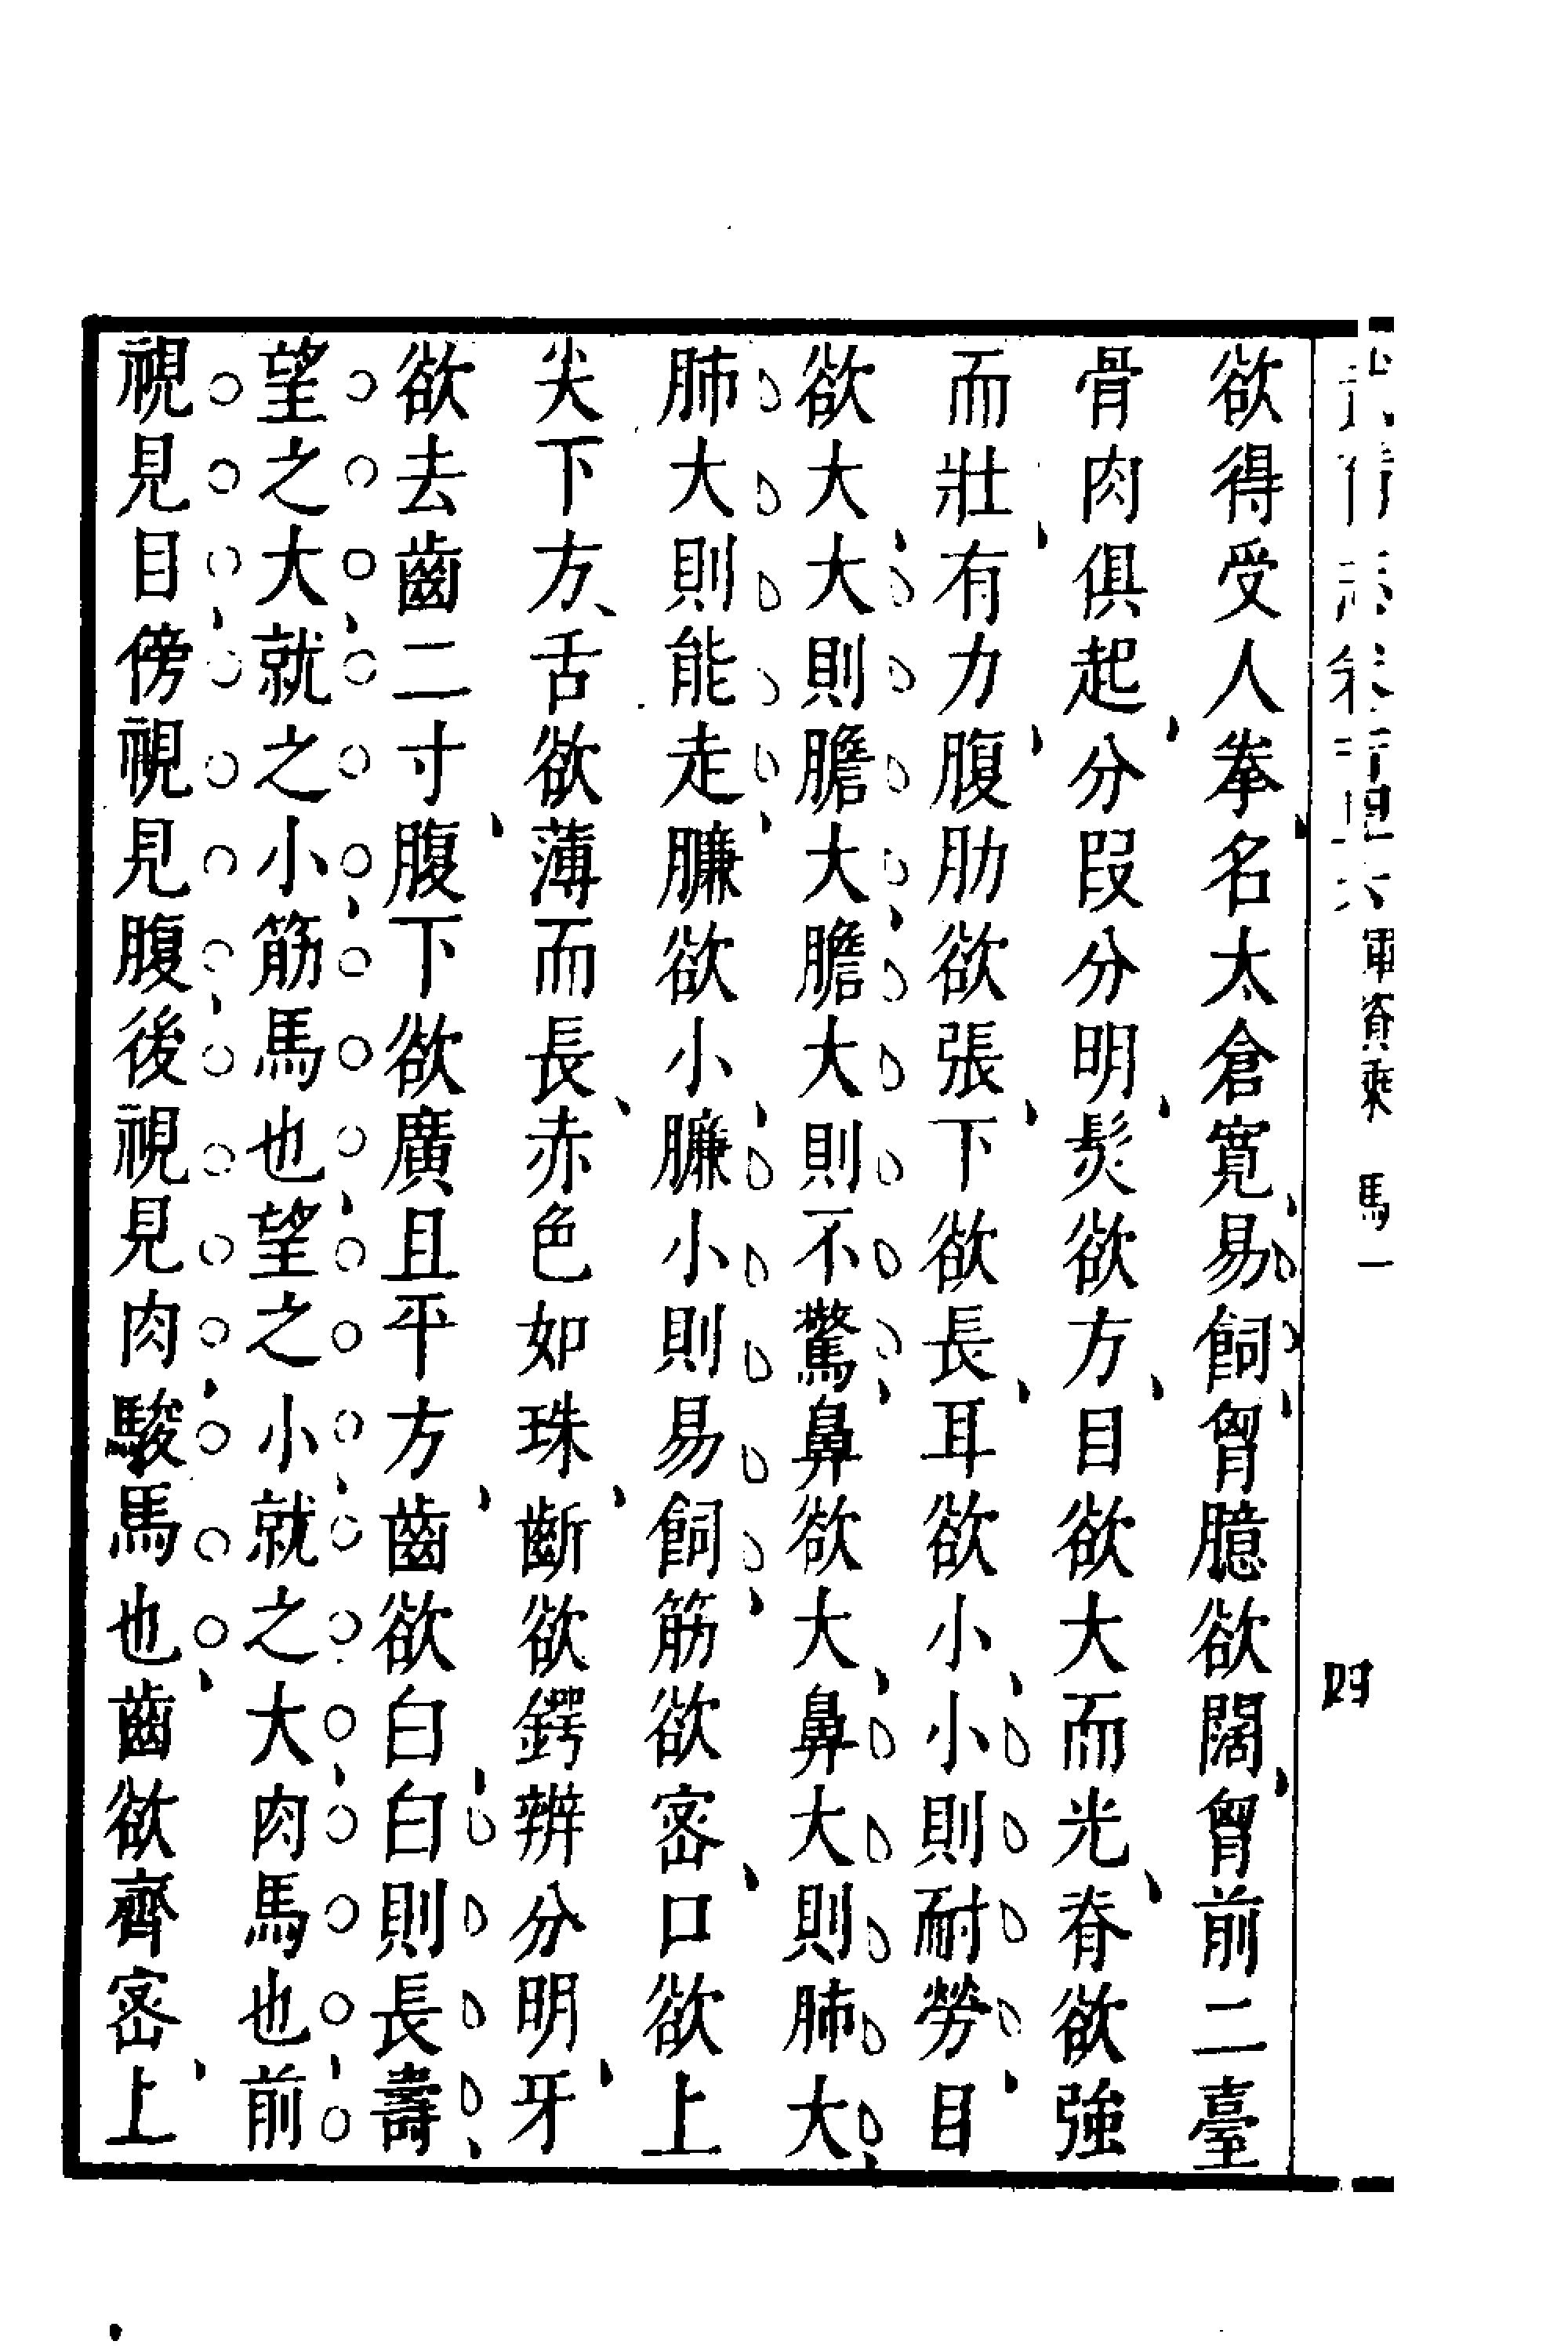 軍資乘 馬一 四
欲得受人拳、名太倉寬、易飼、胷臆欲闊、胷前二臺
骨肉俱起、分段分明、髮欲方、目欲大而光、脊欲強
而壯、有力、腹肋欲張、下欲長、耳欲小、小則耐勞、目
欲大、大則膽大、膽大則不驚、鼻欲大、鼻大則肺大、
肺大則能走、臁欲小、臁小則易飼、筋欲密、口欲上
尖下方、舌欲薄而長、赤色如珠、齗欲鍔辨分明、牙
欲去齒二寸、腹下欲廣且平方、齒欲白、白則長壽、
望之大、就之小、筋馬也、望之小、就之大、肉馬也、前
視見目、傍視見腹、後視見肉、駿馬也、齒欲齊密、上